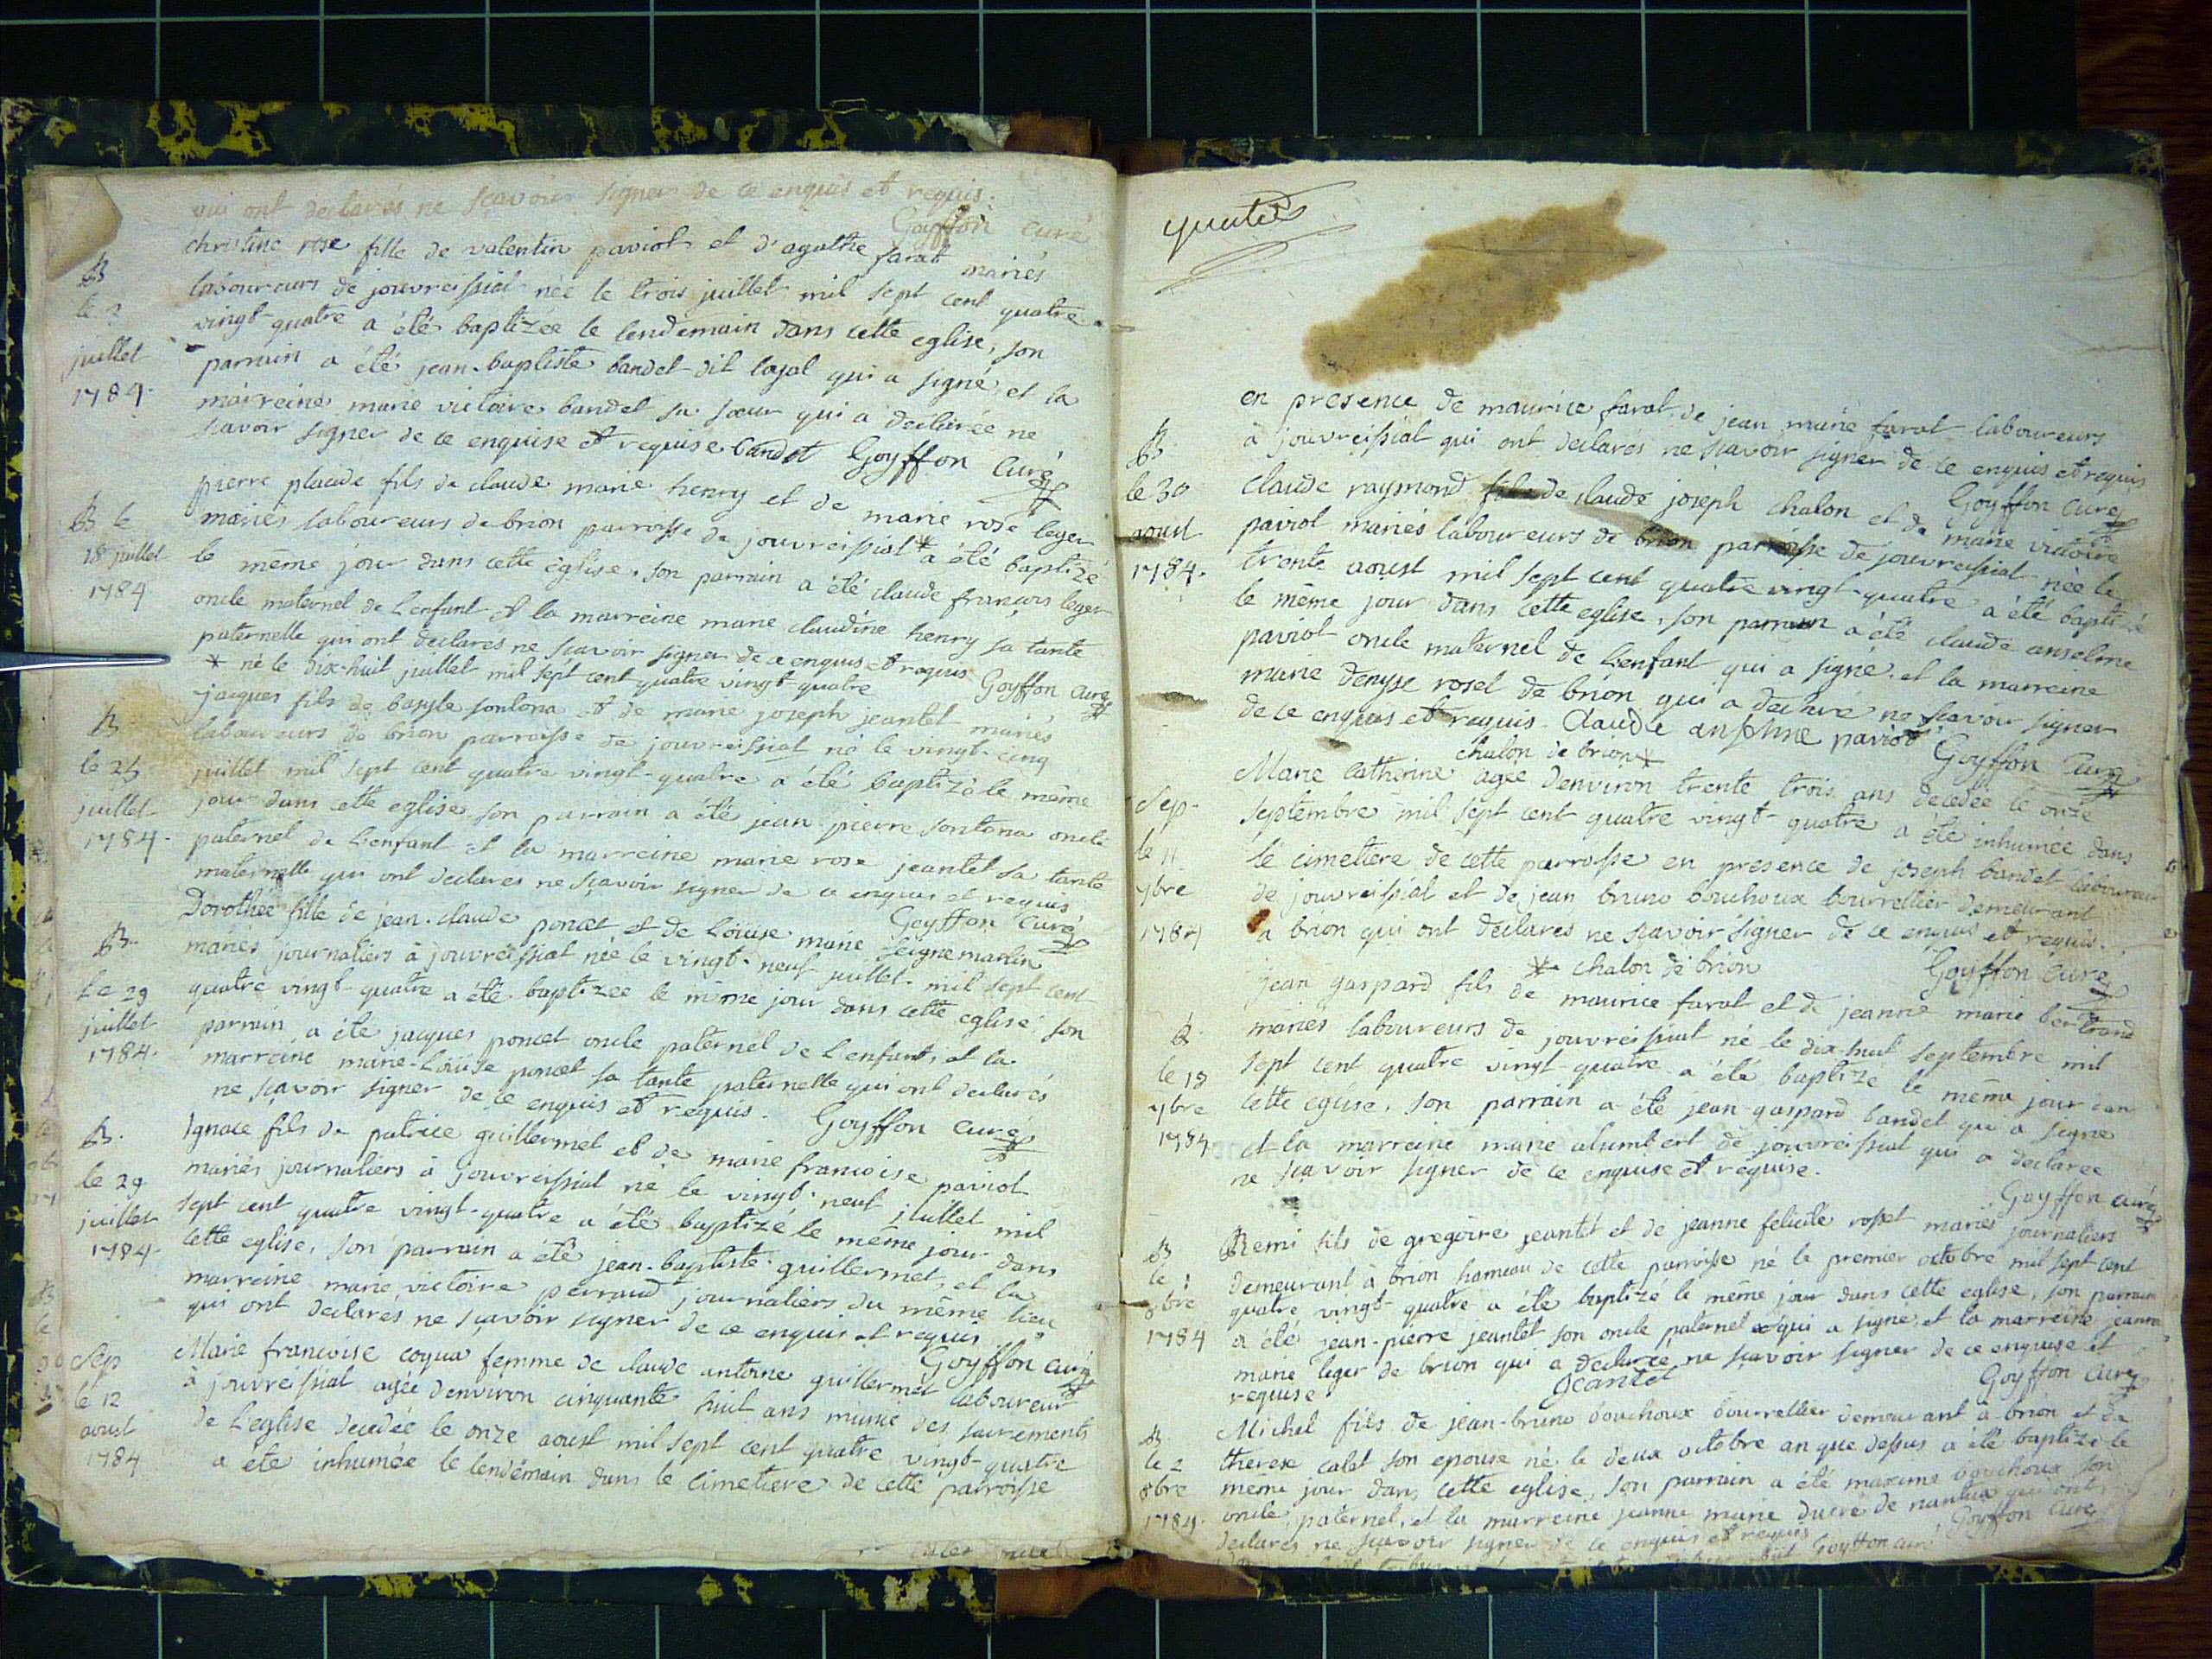 qui ont declarés ne scavoir signer de ce enquis et requis.
Goyffon curé
B
le 3
juillet
1784.
christine rose fille de valentin paviot et d'agathe farat mariés
laboureurs de jouvreissiat née le trois juillet mil sept cent quatre
vingt-quatre a été baptizée le lendemain dans cette eglise, son
parrain a été jean-baptiste bandet dit lajal qui a signé et la
marreine marie victoire bandet sa sœur qui a declarée ne
scavoir signer de ce enquise et requise bandet Goyffon Curé
B le
18 juillet
1784
pierre placide fils de claude marie henry et de marie rose leger
mariés laboureurs de brion parroisse de jouvreissiat * a été baptizé
le même jour dans cette eglise. son parrain a été claude francois leger
oncle maternel de l'enfant et la marreine marie claudine henry sa tante
paternelle qui ont declares ne scavoir signer de ce enquis et requis
* né le dix-huit juillet mil sept cent quatre vingt quatre Goyffon Curé
B
le 25
juillet
1784.
jacques fils de basyle sontona et de marie joseph jeantet mariés
laboureurs de brion parroisse de jouvreissiat né le vingt-cinq
juillet mil sept cent quatre vingt-quatre a été baptizé le même
jour dans cette eglise son parrain a été jean pierre sontona oncle
paternel de l'enfant et la marreine marie rose jeantet sa tante
maternelle qui ont declares ne scavoir signer de ce enquis et requis
Goyffon Curé
B.
Le 29
juillet
1784.
Dorothée fille de jean-claude poncet et de Loüise marie Seignemartin
mariés journaliers à jouvreissiat née le vingt-neuf juillet mil sept cent
quatre vingt-quatre a été baptizée le même jour dans cette eglise son
parrain a été jacques poncet oncle paternel de l'enfant, et la
marreine marie-Loüise poncet sa tante paternelle qui ont declarés
ne scavoir signer de ce enquis et requis. Goyffon Curé
B.
le 29
juillet
1784.
Ignace fils de patrice guillermet et de marie francoise paviot
mariés journaliers à jouvreissiat né le vingt-neuf juillet mil
sept cent quatre vingt-quatre a été baptizé le même jour dans
cette eglise, son parrain a été jean-baptiste guillermet, et la
marreine marie victoire perraud journaliers du même lieu
qui ont declares ne scavoir signer de ce enquis et requis
Goyffon curé
Sep
le 12
aoust
1784
Marie francoise coqua femme de claude antoine guillermet laboureur
à jouvreissiat agée d'environ cinquante huit ans munie des sacrements
de L'eglise decedée le onze aoust mil sept cent quatre vingt-quatre
a été inhumée le lendemain dans le cimetiere de cette parroisse
en presence de maurice farat de jean marie farat laboureurs
à jouvreissiat qui ont declares ne scavoir signer de ce enquis et requis
Goyffon Curé
B
le 30
aoust
1784.
Claude raymond fils de claude joseph chalon et de marie victoire
paviot mariés laboureurs de brion parroisse de jouvreissiat née le
trente aoust mil sept cent quatre vingt-quatre a été baptizé
le même jour dans cette eglise, son parrain a été claude anselme
paviot oncle maternel de L'enfant qui a signé, et la marreine
marie denyse rosel de brion qui a declaré ne scavoir signer
de ce enquis et requis. Claude anselme paviot Goyffon Curé
Sep.
le 11
7bre
1784
chalon de brion *
Marie Catherine agée d'environ trente trois ans decedée le onze
septembre mil sept cent quatre vingt-quatre a été inhumée dans
le cimetiere de cette parroisse en presence de joseph bandet laboureur
de jouvreissiat et de jean bruno bouchoux bourrellier demeurant
a brion qui ont declarés ne scavoir signer de ce enquis et requis.
* chalon de brion Goyffon Curé
B
le 18
7bre
1784
jean gaspard fils de maurice farat et de jeanne marie bertrand
mariés laboureurs de jouvreissiat né le dix-huit septembre mil
sept cent quatre vingt-quatre a été baptizé le même jour dan
cette eglise, son parrain a été jean-gaspard bandet qui a signé
et la marreine marie alumbert de jouvreissiat qui a declarée
ne scavoir signer de ce enquise et requise.
Goyffon curé
B
le 1
8bre
1784
Remi fils de gregoire jeantet et de jeanne felicité rosset mariés journaliers
demeurant à brion hameau de cette parroisse né le premier octobre mil sept cent
quatre vingt-quatre a été baptizé le même jour dans cette eglise, son parrain
a été jean-pierre jeantet son oncle paternel qui a signé et la marreine jeanne
marie leger de brion qui a declarée ne scavoir signer de ce enquise et
requise jeantet Goyffon Curé
B.
le 2
8bre
1784.
Michel fils de jean-bruno bouchoux bourrellier demeurant à brion et de
therese calet son epouse né le deux octobre an que dessus a été baptizé le
même jour dans cette eglise, son parrain a été maxime bouchoux son
oncle paternel, et la marreine jeanne marie ducre de nantua qui ont
declares ne scavoir signer de ce enquis et requis Goyffon Curé
Goyffon curé